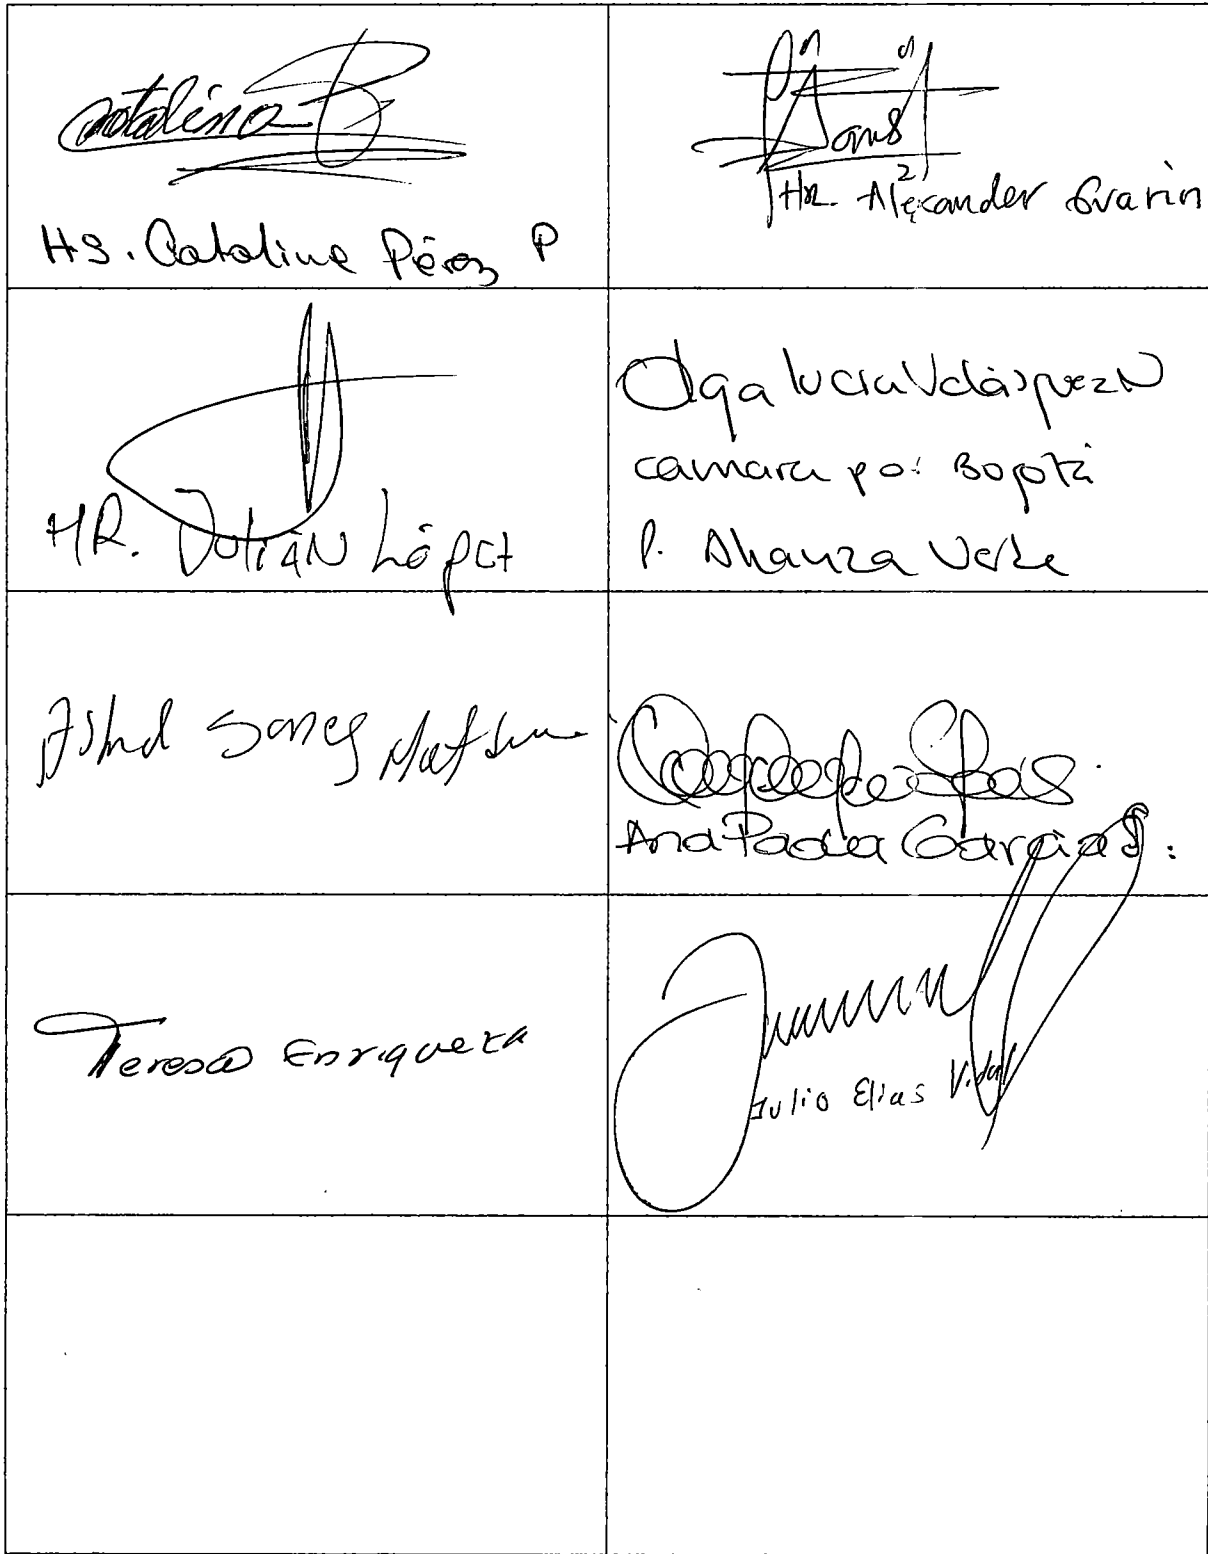 Catalina
HS. Catalina Pérez P
HR. Alexander Guarin
HR. Julián López
Olga Lucia Velásquez N
camara por Bogotá
P. Alianza Verde
Astrid Sanchez
Ana Paola Garcia S.
Teresa Enriquez
Julio Elias Vidal